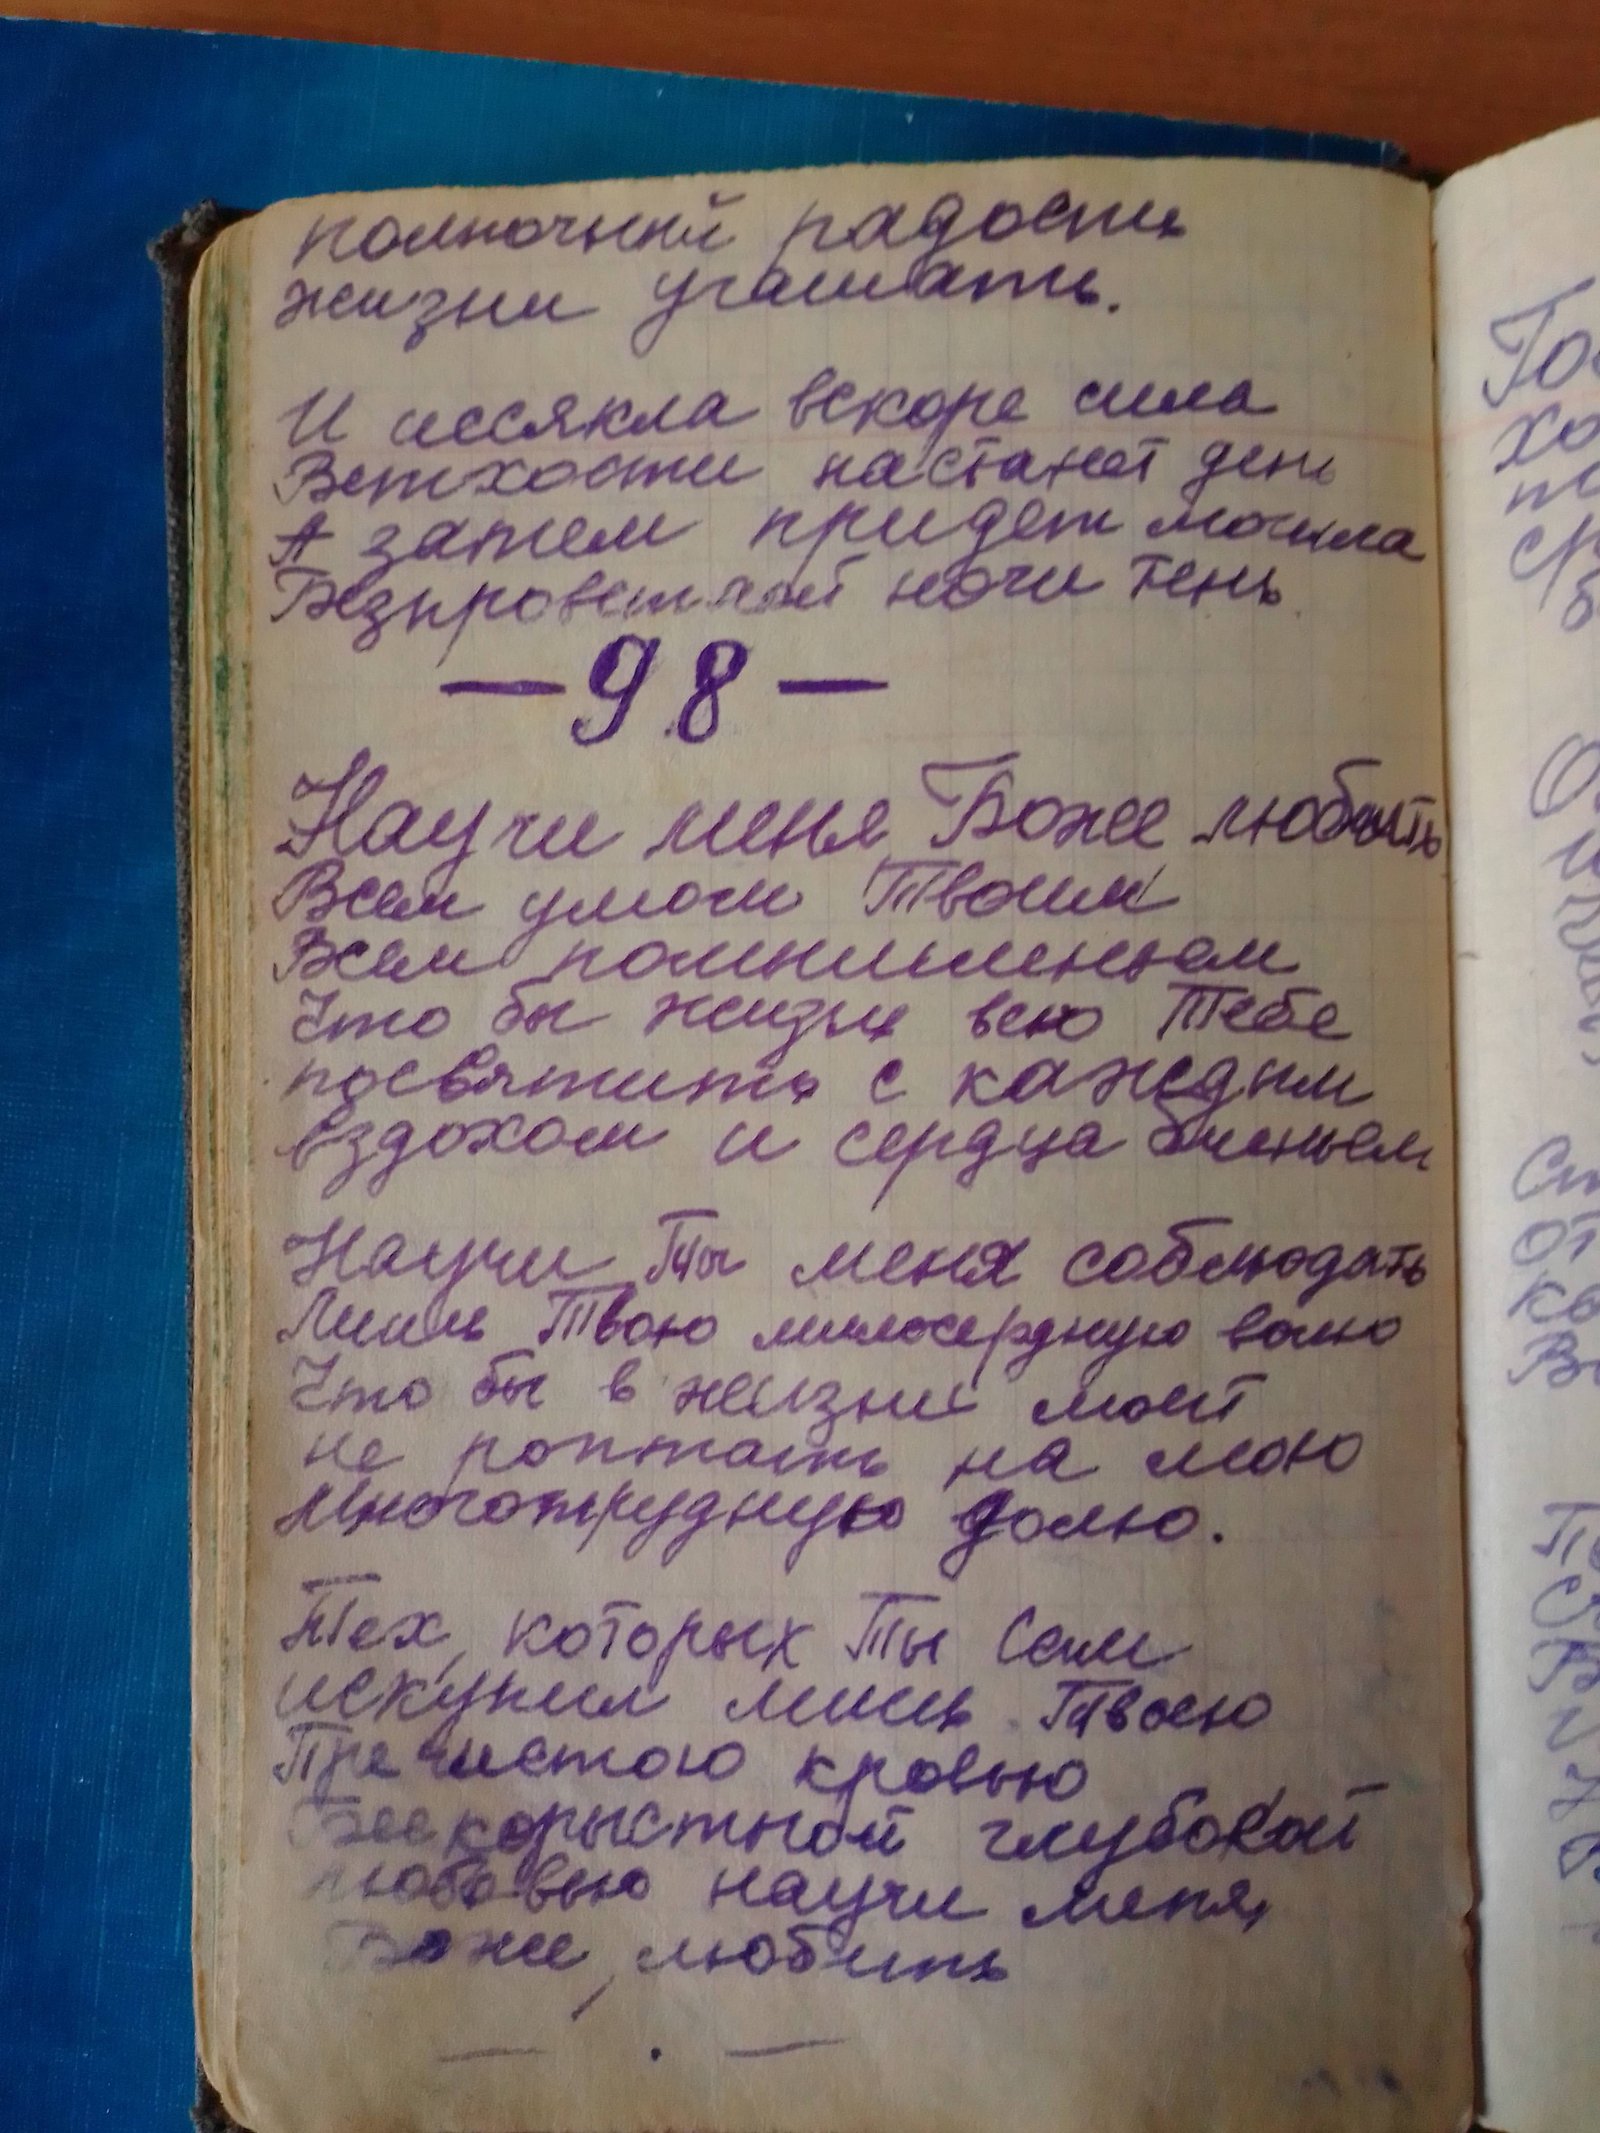 полночный радости
жизни угашать.
И иссякла вскоре сила
Ветхости настанет день
А затем придет могила
Безпросветной ночи тень
—98—
Научи меня Боже любить
Всем умом Твоим
Всем помышленьем
Что бы жизнь всю Тебе
посвятить с каждым
вздохом и сердца биеньем
Научи Ты меня соблюдать
Лишь Твою милосердную волю
Что бы в жизни моей
не роптать на мою
Многотрудную долю.
Тех, которых Ты Сам
искупил лишь Твоею
Пречистою кровью
Бескорыстной глубокой
любовью научи меня,
Боже, любить
Го
хо
О
Ст
от
Ве